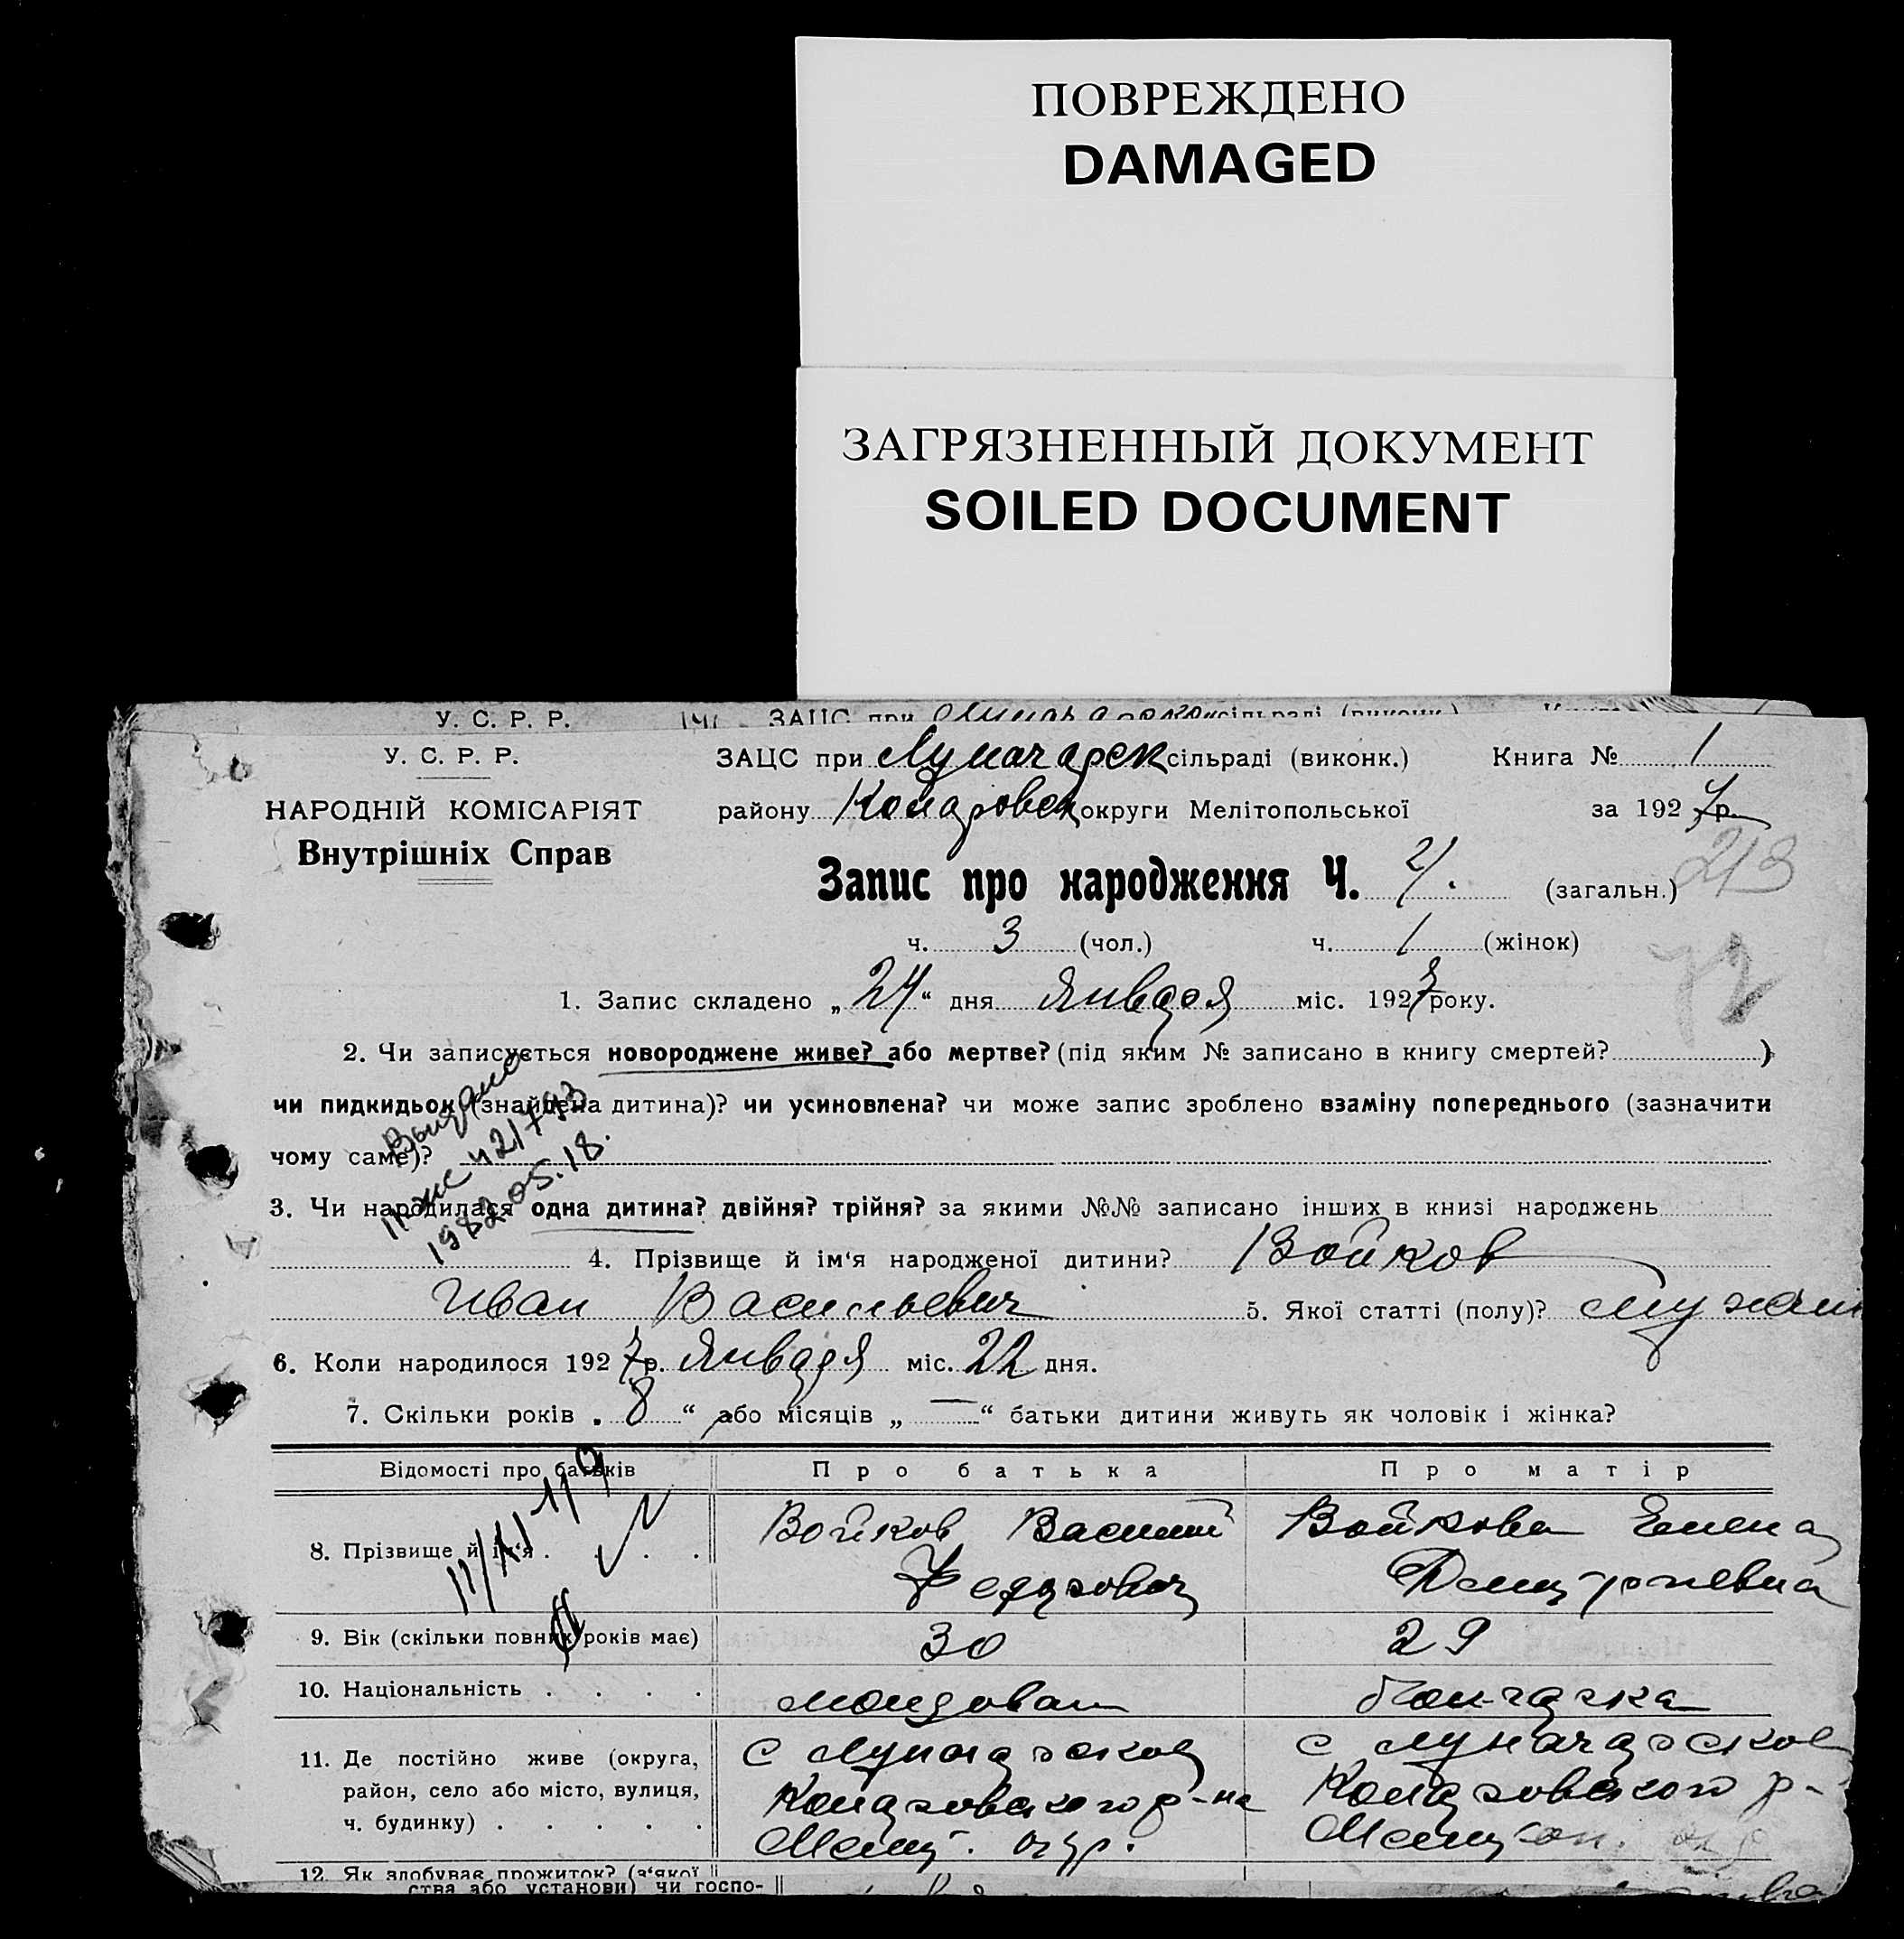 ПОВРЕЖДЕНО
DAMAGED
ЗАГРЯЗНЕННЫЙ ДОКУМЕНТ
SOILED DOCUMENT
У. С. Р. Р. ЗАЦС при сільраді (виконк.)
У. С. Р. Р. ЗАЦС при Луначарск сільраді (виконк.) Книга № 1
НАРОДНІЙ КОМІСАРІЯТ району округи Мелітопольської за 1927 р.
Внутрішніх Справ
213
Запис про народження Ч. 4. (загальн.)
ч. 3 (чол.) ч. 1 (жінок)
72
1. Запис складено „24“ дня января міс. 1927 року.
2. Чи записується новороджене живе? або мертве? (під яким № записано в книгу смертей? )
чи пидкидьок (знайдена дитина)? чи усиновлена? чи може запис зроблено взаміну попереднього (зазначити
чому саме)?
Выдано
421793
1982.05.18.
3. Чи народилася одна дитина? двійня? трійня? за якими №№ записано інших в книзі народжень
4. Прізвище й ім‘я народженої дитини? Войков
Иван Васильевич 5. Якої статті (полу)? мужск
6. Коли народилося 1927 р. января міс. 22 дня.
7. Скільки років „ 8 “ або місяців „ — “ батьки дитини живуть як чоловік і жінка?
Відомості про батьків Про батька Про матір
8. Прізвище й ім‘я . . . . Войков Василий Войкова Елена
Федорович Дмитриевна
9. Вік (скільки повних років має) 30 29
10. Національність . . . . молдован болгарка
11. Де постійно живе (округа, с Луначарское с Луначарское
район, село або місто, вулиця, р-на р-
ч. будинку) . . . . . Мелит. окр. Мелитоп. окр
12. Як здобуває прожиток? (з‘якої
ства або установи) чи госпо-